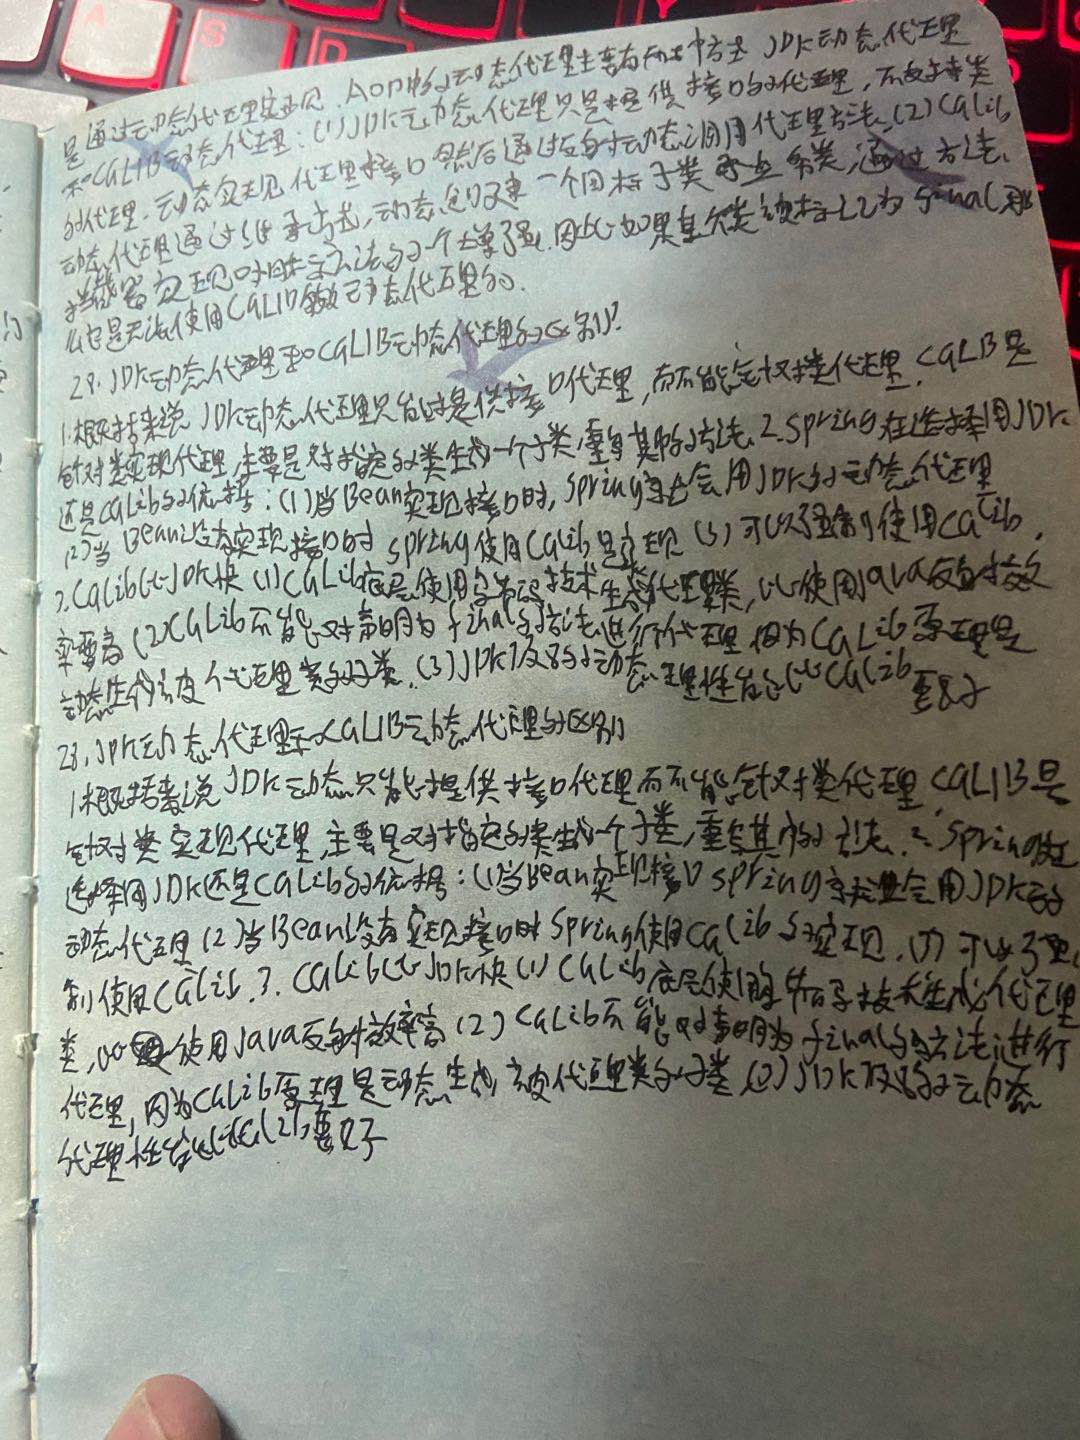 是通过动态代理实现. AOP中的动态代理主要有两种方法 JDK动态代理
和CGLIB动态代理:(1)JDK动态代理只是提供接口的代理,不支持类
的代理.动态实现代理接口 然后通过反射动态调用代理方法.(2)CGLib
动态代理通过继承方式,动态创建一个目标子类 通过方法
拦截器实现对目标方法的一个增强.因此如果某个类被标记为final,那
么它是无法使用CGLIB做动态代理的.
28.JDK动态代理和CGLIB动态代理的区别?
1.概括来说 JDK动态代理只能提供接口代理,而不能针对类代理.CGLIB是
针对类实现代理,主要是对指定的类生成一个子类,重写其中的方法.2.Spring在选择用JDK
还是CGLib的依据:(1)当Bean实现接口时,Spring就会用JDK的动态代理
(2)当Bean没有实现接口时 Spring使用CGLib是实现 (3)可以强制使用CGLib.
3.CGLib比JDK快 (1)CGLib底层使用字节码技术生成代理类,比使用Java反射效
率要高 (2)CGLib不能对声明为final的方法进行代理 因为CGLib原理是
动态生成被代理类的子类.(3)JDK 的动态 理性能比CGLib 要好
28.JDK动态代理和CGLIB动态代理的区别
1.概括来说 JDK动态只能提供接口代理而不能针对类代理.CGLIB是
针对类实现代理,主要是对指定的类生成一个子类,重写其中的方法.2.Spring在
选择用JDK还是CGLib的依据:(1)当Bean实现接口 Spring就会用JDK的
动态代理(2)当Bean没有实现接口时Spring使用CGLib的实现.(3)可以强
制使用CGLib.3.CGLib比JDK快(1)CGLib底层使用 技术生成代理
类,比 使用Java反射效率高(2)CGLib不能对声明为final的方法进行
代理,因为CGLib原理是动态生成被代理类的子类.(3)JDK 的动态
代理性能比 要好